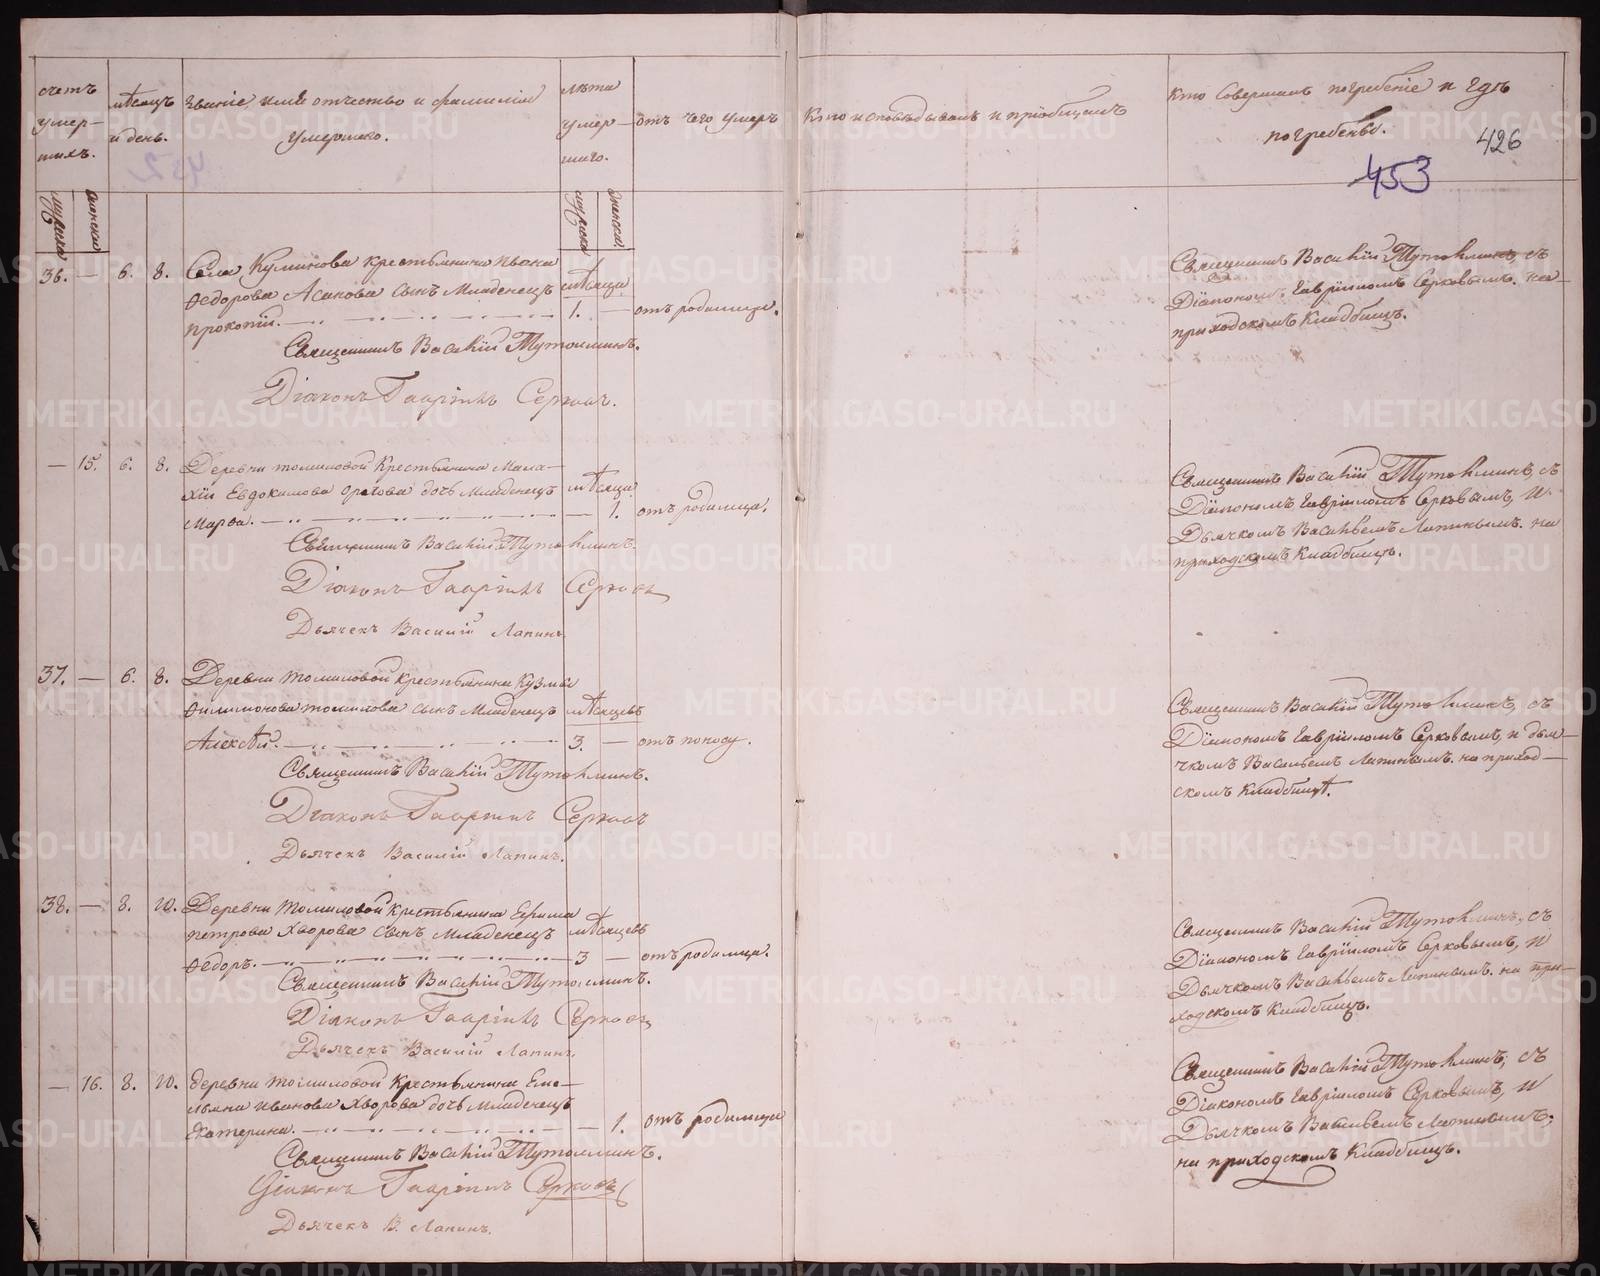 счетъ умер-шихъ.
мѣсяцъ и день.
званіе имя отчество и фамилія умершаго.
лѣта умер-шаго.
отъ чего умеръ
Кто исповѣдывалъ и пріобщалъ
Кто Совершалъ погребеніе и гдѣ погребены.
426
453
мужеска
женска
мужеска
женска.
36. — 6. 8. Села Куминова крестьянина Ивана мѣсяца
Ѳедорова Асанова сынъ Младенецъ
Прокопій. 1. — отъ родимца.
Священникъ Василій Тутолминъ.
Діаконъ Гавріилъ Серковъ.
Священникъ Василій Тутолминъ, съ
Діакономъ Гавріиломъ Серковымъ. на
приходскомъ Кладбищѣ.
— 15. 6. 8. Деревни томиловой Крестьянина Мала-
хіи Евдокимова Орлова дочь Младенецъ мѣсяца
Марѳа. — 1. отъ родимца.
Священникъ Василій Тутолминъ.
Діаконъ Гавріилъ Серковъ
Дьячекъ Василій Лапинъ
Священникъ Василій Тутолминъ, съ
Діакономъ Гавріиломъ Серковымъ, и
Дьячкомъ Васильемъ Лапинымъ. на
приходскомъ Кладбищѣ.
37. — 6. 8. Деревни томиловой крестьянина Кузмы
Филимонова томилова сынъ Младенецъ мѣсяцевъ
Алексѣй. 3. — отъ поносу.
Священникъ Василій Тутолминъ.
Діаконъ Гавріилъ Серковъ
Дьячекъ Василій Лапинъ.
Священникъ Василій Тутолминъ, съ
Діакономъ Гавріиломъ Серковымъ, и дья-
чкомъ Васильемъ Лапинымъ. на приход-
скомъ Кладбищѣ.
38. — 8. 10. Деревни томиловой крестьянина Ефима
петрова Хворова сынъ Младенецъ мѣсяцевъ
Ѳедоръ. 3 — отъ родимца.
Священникъ Василій Тутолминъ.
Діаконъ Гавріилъ Серковъ
Дьячекъ Василій Лапинъ.
Священникъ Василій Тутолминъ, съ
Діакономъ Гавріиломъ Серковымъ, и
Дьячкомъ Васильемъ Лапинымъ. на при-
ходскомъ Кладбищѣ.
— 16. 8. 10. деревни томиловой Крестьянина Еме-
льяна Иванова Хворова дочь Младенецъ
Екатерина. — 1. отъ родимца
Священникъ Василій Тутолминъ.
Діаконъ Гавріилъ Серковъ
Дьячекъ В. Лапинъ.
Священникъ Василій Тутолминъ, съ
Діакономъ Гавріиломъ Серковымъ, и
Дьячкомъ Васильемъ Лапинымъ;
на приходскомъ Кладбищѣ.
METRIKI.GASO-URAL.RU